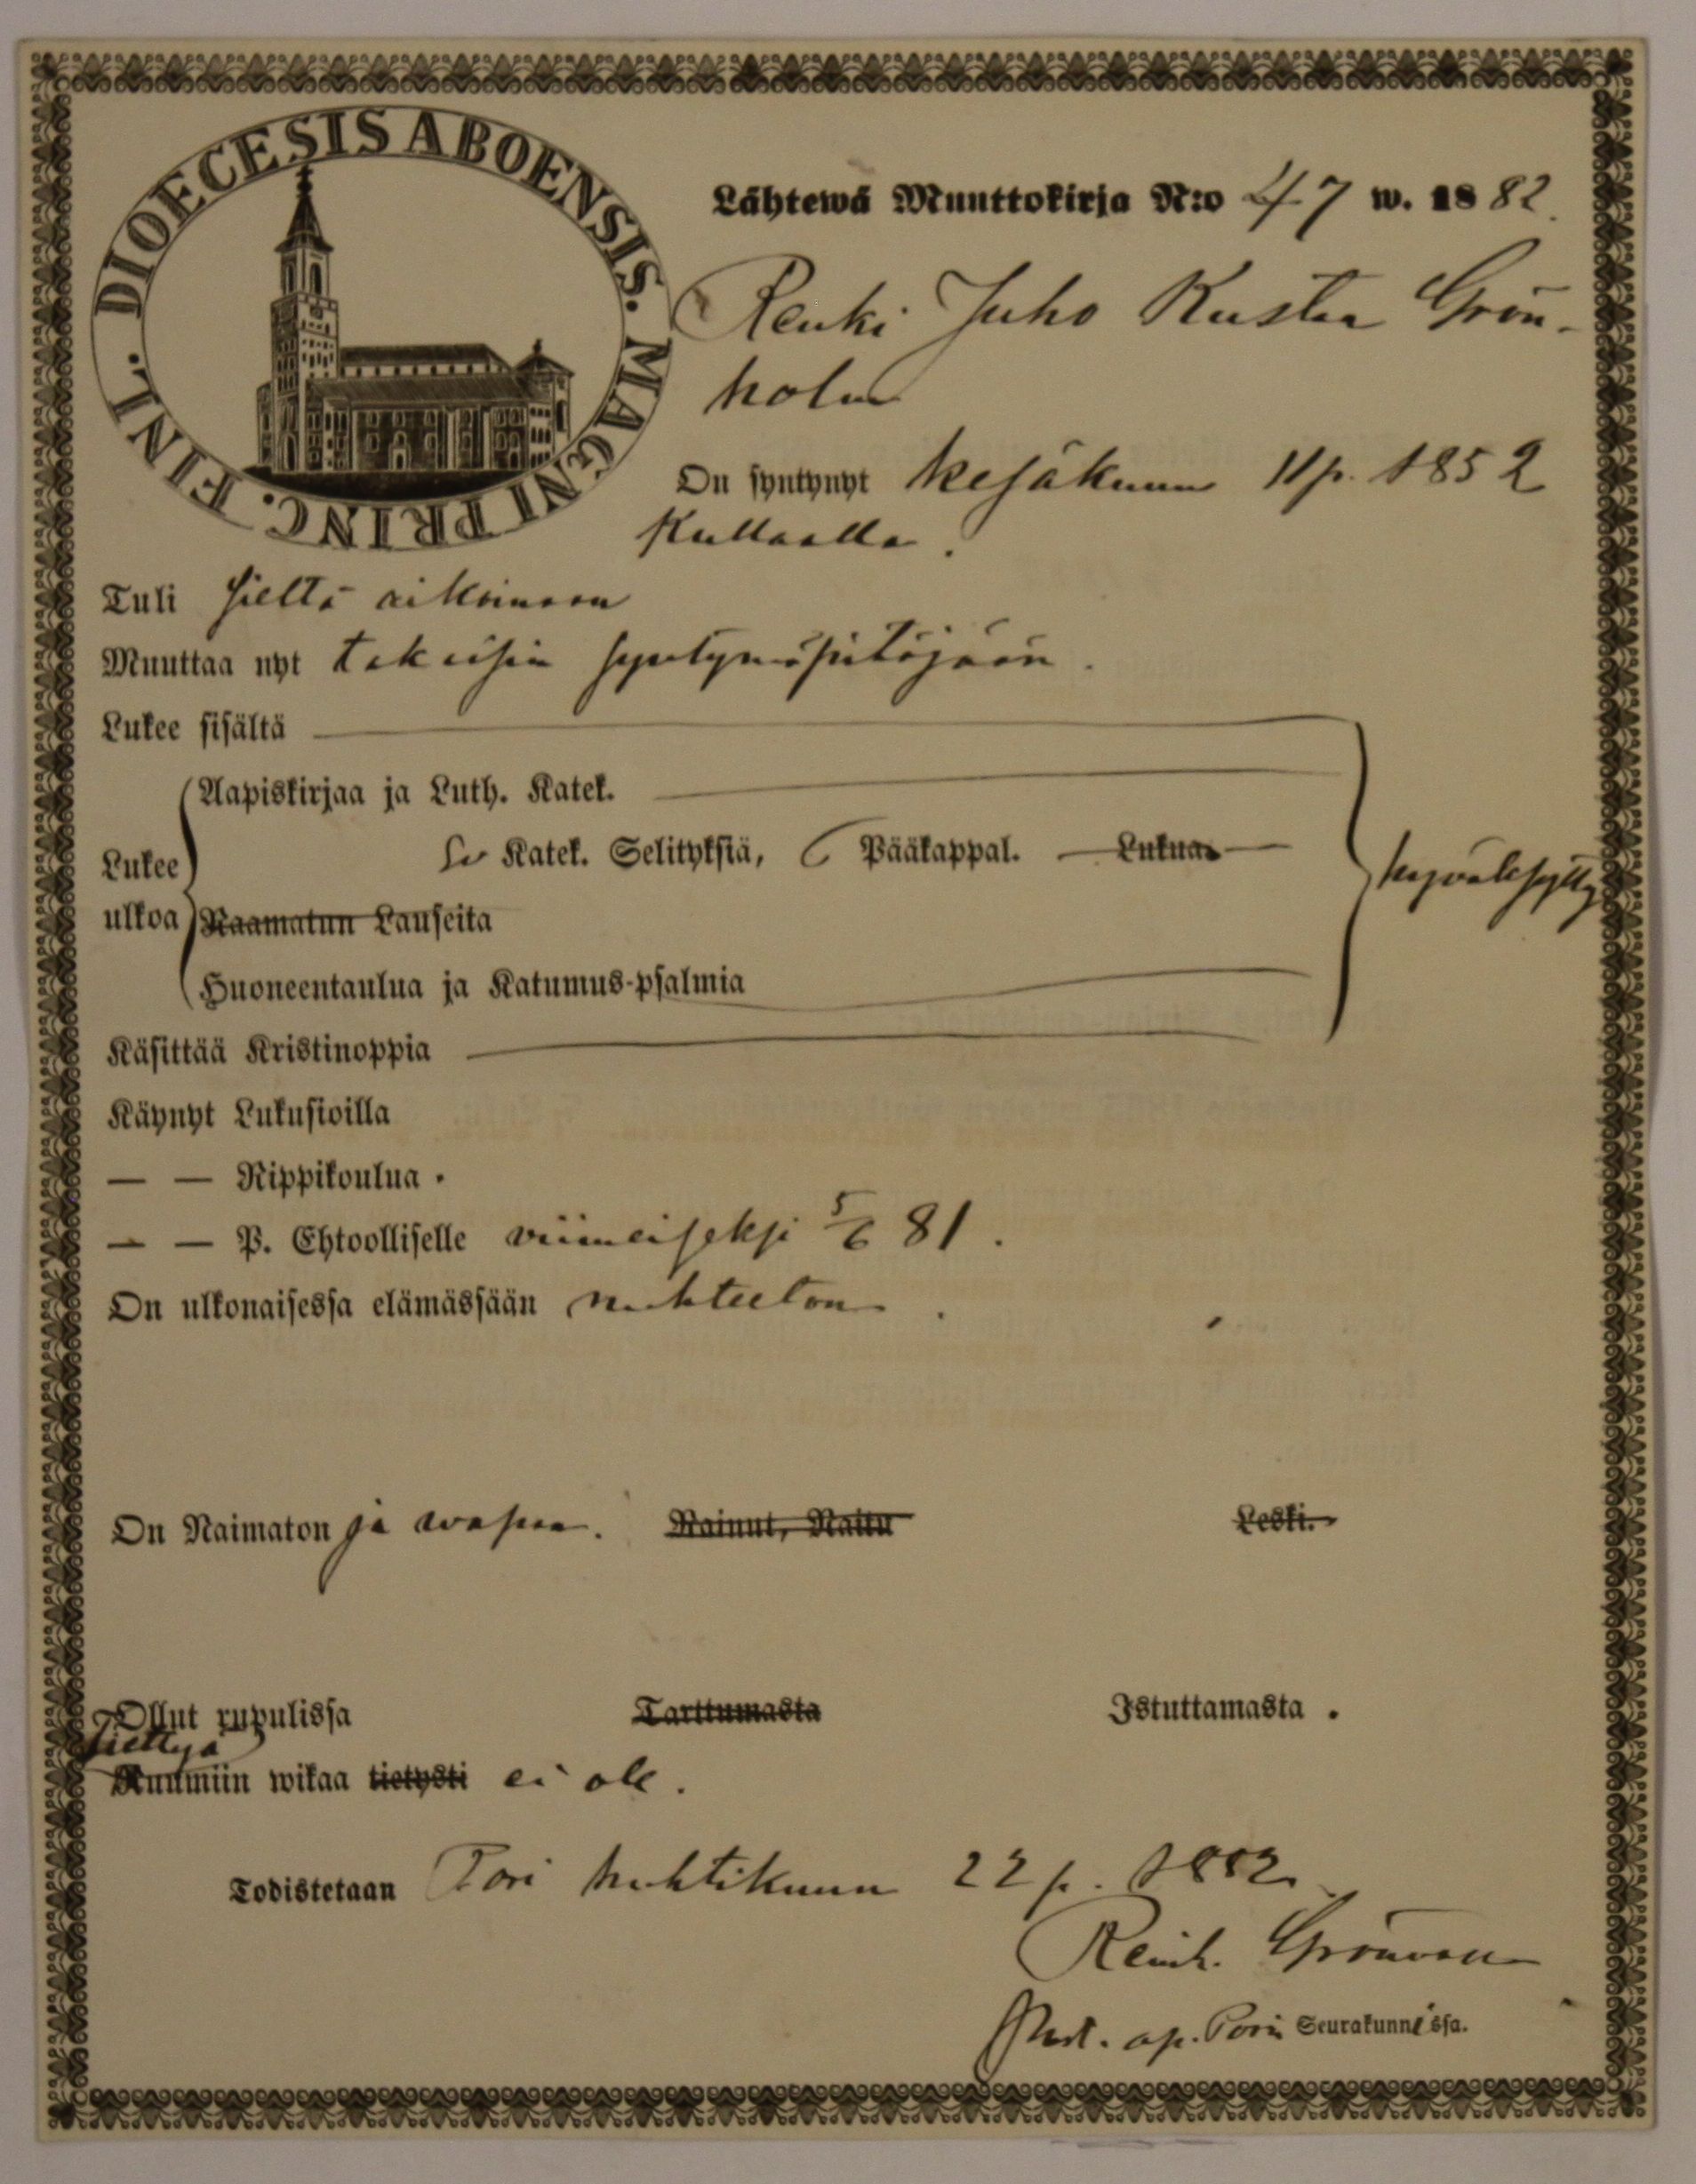 DIOECESIS ABOENSIS. MAGNI PRINC. FINL.
Lähtewä Muuttokirja N:o 47 w. 1882.
Renki Juho Kustaa Grön-
holm
On syntynyt kesäkuun 11 p. 1852
Kullaalla.
Tuli sieltä aikoinaan
Muuttaa nyt takaisin syntymäpitäjään.
Lukee sisältä
Aapiskirjaa ja Luth. Katek.
Lukee
ulkoa
Sv Katek. Selityksiä, 6 Pääkappal. Lukua
hyväksytty
Raamatun Lauseita
Huoneentaulua ja Katumus-psalmia
Käsittää Kristinoppia
Käynyt Lukusioilla
— — Rippikoulua .
— — P. Ehtoolliselle viimeiseksi 5/6 81.
On ulkonaisessa elämässään nuhteeton.
On Naimaton ja wapaa. Nainut, Naitu Leski.
Ollut rupulissa Tarttumasta Istuttamasta .
Tiettyä
Ruumiin wikaa tietysti ei ole.
Todistetaan Pori huhtikuun 22 p. 1882.
Reinh. Grönvall
ap. Porin Seurakunnissa.